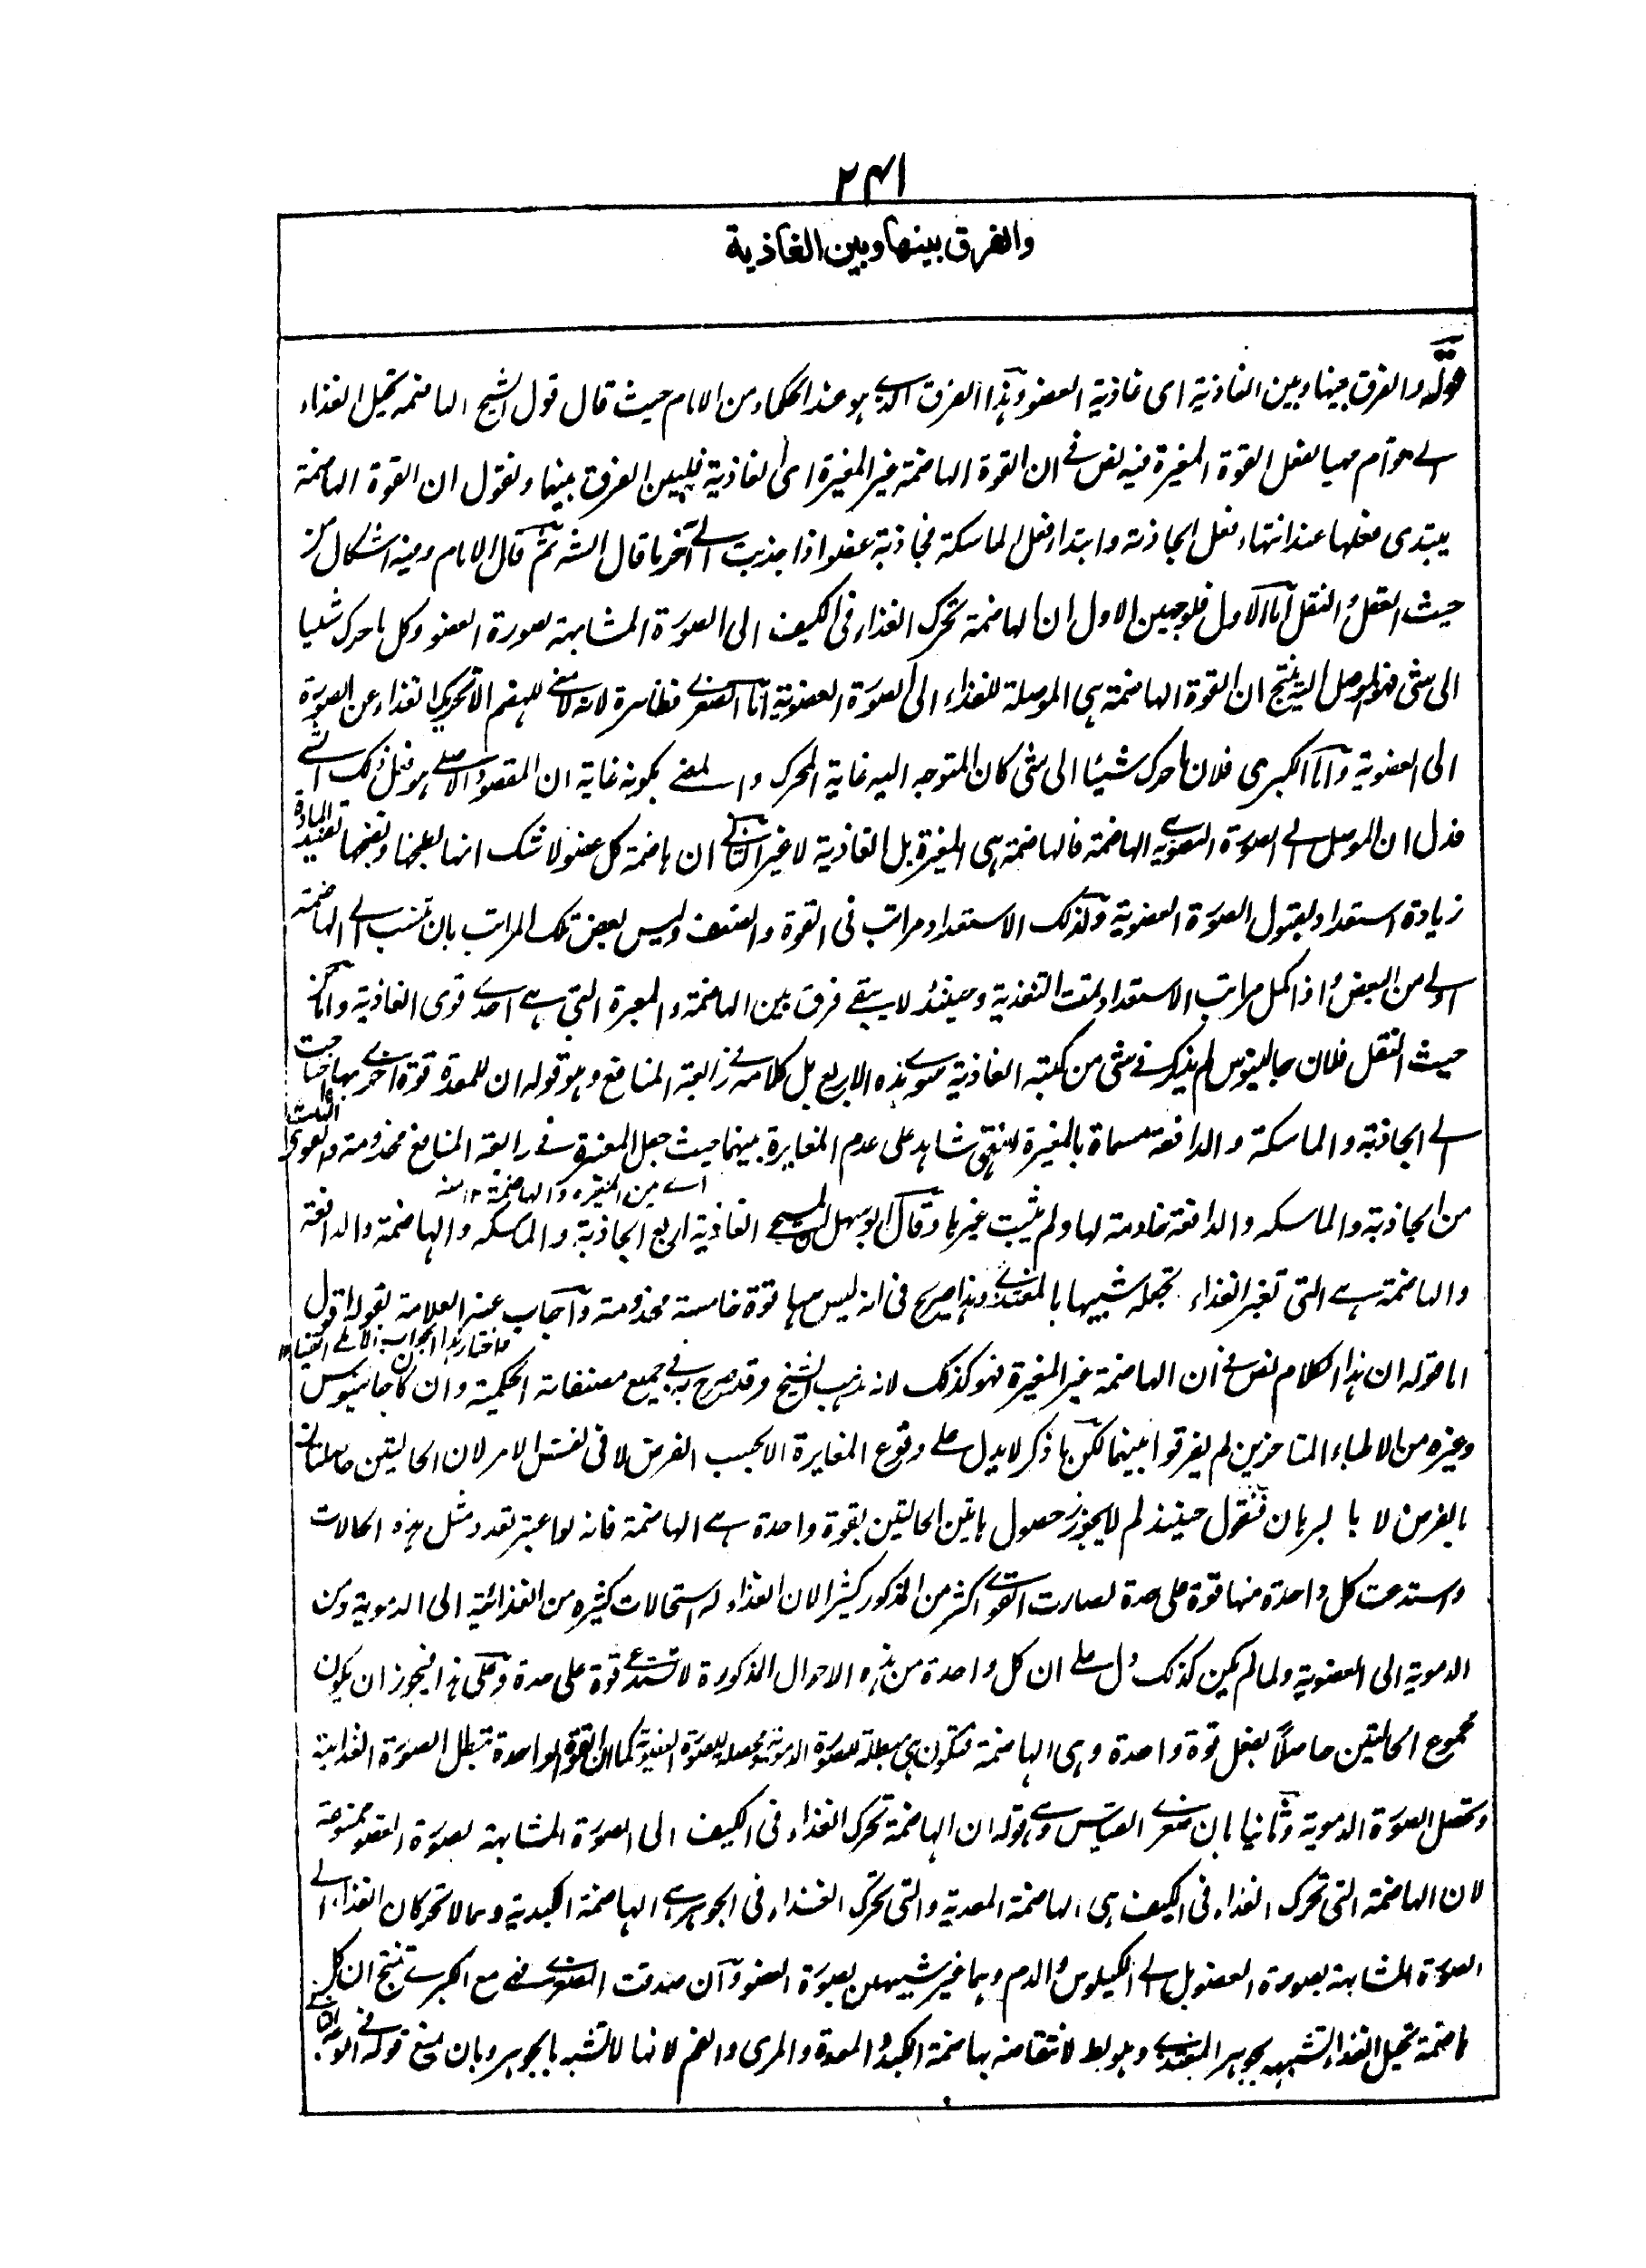 ٢٤١
والفرق بينها وبين الغاذية
قوله والفرق بينها وبين الغاذية اى غاذية العضو وهذا الفرق الذى هو عند الحكماء من الامام حيث قال قول الشيخ الهاضمة تحيل الغذاء
الى قوام مهيا لفعل القوة المغيرة فيه نص فى ان القوة الهاضمة غير المغيرة اى الغاذية فليبين الفرق بينهما ونقول ان القوة الهاضمة
يبتدى فعلها عند انتهاء فعل الجاذبة وابتداء فعل الماسكة فجاذبة عضو اذا جذبت الى آخر ما قال الشه ثم قال الامام وفيه اشكال من
حيث العقل والنقل اما الاول فلوجهين الاول ان الهاضمة تحرك الغذاء فى الكيف الى الصورة المشابهة لصورة العضو وكل ما حرك شيئا
الى شئ فهو الموصل اليه ينتج ان القوة الهاضمة هى الموصلة للغذاء الى الصورة العضوية اما الصغرى فظاهرة لانه لا معنى للهضم الا تحريك الغذاء عن الصورة
الى العضوية واما الكبرى فلان ما حرك شيئا الى شئ كان المتوجه اليه غاية المحرك والمعنى بكونه غاية ان المقصود الاصلى هو فعل ذلك الشئ
فدل ان الموصل الى الصورة العضوية الهاضمة فالهاضمة هى المغيرة بل الغاذية لا غير الثانى ان هاضمة كل عضو لا شك انها بطبخها ونضجها تفيد المادة
زيادة استعداد لقبول الصورة العضوية ولذلك الاستعداد مراتب فى القوة والضعف وليس بعض تلك المراتب بان تنسب الى الهاضمة
اولى من البعض واذا كمل مراتب الاستعداد تمت التغذية وحينئذ لا يبقى فرق بين الهاضمة والمغيرة التى هى احدى قوى الغاذية واما من
حيث النقل فلان جالينوس لم يذكر فى شئ من كتبه الغاذية سوى هذه الاربع بل كلامه فى رابعة المنافع وهو قوله ان للمعدة قوة اخرى بها احتاجت
الى الجاذبة والماسكة والدافعة مسماة بالمغيرة انتهى شاهد على عدم المغايرة بينهما حيث جعل المغيرة فى رابعة المنافع مخدومة والقوى الثلث
اى بين المغيره والهاضمة ١٢ منه
من الجاذبة والماسكه والدافعة خادمة لها ولم يثبت غيرها وقال ابو سهل المسيحى الغاذية اربع الجاذبة والماسكه والهاضمة والدافعة
والهاضمة هى التى تغير الغذاء تجعله شبيها بالمغتذى وهذا صريح فى انه ليس ههنا قوة خامسة مخدومة واجاب عنه العلامة بقوله اقول
اما قوله ان هذا الكلام نص فى ان الهاضمة غير المغيرة فهو كذلك لانه مذهب الشيخ وقد صرح به فى جميع مصنفاته الحكمية وان كان جالينوس
وغيره من الاطباء المتاخرين لم يفرقوا بينهما لكن ما ذكر لا يدل على وقوع المغايرة الا بحسب الفرض لا فى نفس الامر لان الحالتين حاصلتان
بالفرض لا بالبرهان فنقول حينئذ لم لا يجوز حصول هاتين الحالتين بقوة واحدة هى الهاضمة فانه لو اعتبر تعدد مثل هذه الحالات
واستدعت كل واحدة منها قوة على حدة لصارت القوى اكثر من المذكور كثيرا لان الغذاء له استحالات كثيره من الغذائية الى الدموية ومن
الدموية الى العضوية ولما لم يكن كذلك دل على ان كل واحدة من هذه الاحوال المذكورة لا تستدعى قوة على حدة وعلى هذا فيجوز ان يكون
مجموع الحالتين حاصلاً بفعل قوة واحدة وهى الهاضمة فتكون هى مبطلة للصورة الدموية ومحصلة للصورة العضوية كما ان القوة الواحدة تبطل الصورة الغذائية
وتحصل الصورة الدموية وثانيا بان صغرى القياس وهى قوله ان الهاضمة تحرك الغذاء فى الكيف الى الصورة المشابهة لصورة العضو ممنوعة
لان الهاضمة التى تحرك الغذاء فى الكيف هى الهاضمة المعدية والتى تحرك الغذاء فى الجوهر هى الهاضمة الكبدية وهما لا تحركان الغذاء الى
الصورة المشابهة بصورة العضو بل الى الكيلوس والدم وهما غير شبيهين بصورة العضو وان صدقت الصغرى فهى مع الكبرى تنتج ان كل
هاضمة تحيل الغذاء لتشبهه بجوهر المغتذى وهو بط لانتقاضه بهاضمة الكبد والمعدة والمرى والفم لانها لا تشبه بالجوهر وبان معنى قوله فى الوجه الثانى